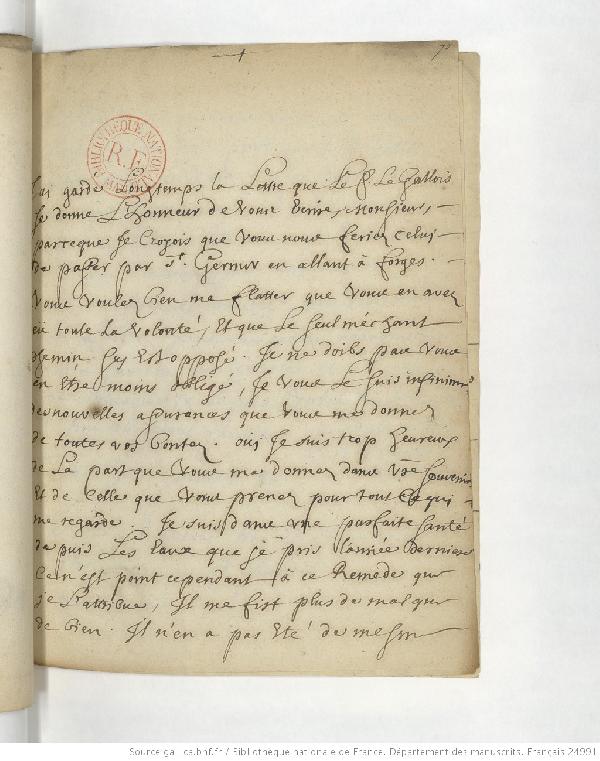 75
BIBLIOTHEQUE NATIONALE
R.F.
J'ai gardé Longtemps la Lettre que Le P. Le Gallois
se donne L'Honneur de Vous Ecrire, Monsieur,
parceque Je Croyois que Vous nous feriez celui
de passer par St. Germer en allant à forges.
Vous Voulez bien me flatter que Vous en avez
eû toute La Volonté, Et que Le seul méchant
chemin s'y Est opposé. Je ne dois pas Vous
en être moins obligé, Je Vous Le suis infinimt
des nouvelles assurances que Vous me donnez
de toutes vos bontez. oüi Je suis trop heureux
de La part que Vous me donnez dans Vre souvenir
Et de Celle que Vous prenez pour tout Ce qui
me regarde. Je suis dans une parfaite santé
depuis Les Eaux que j'é pris L'année derniere
Ce n'est point cependant à ce Remede que
je L'attribue, Il me fist plus de mal que
de bien. Il n'en a pas Eté de mesme
Source gallica.bnf.fr / Bibliothèque nationale de France. Département des manuscrits. Français 24991